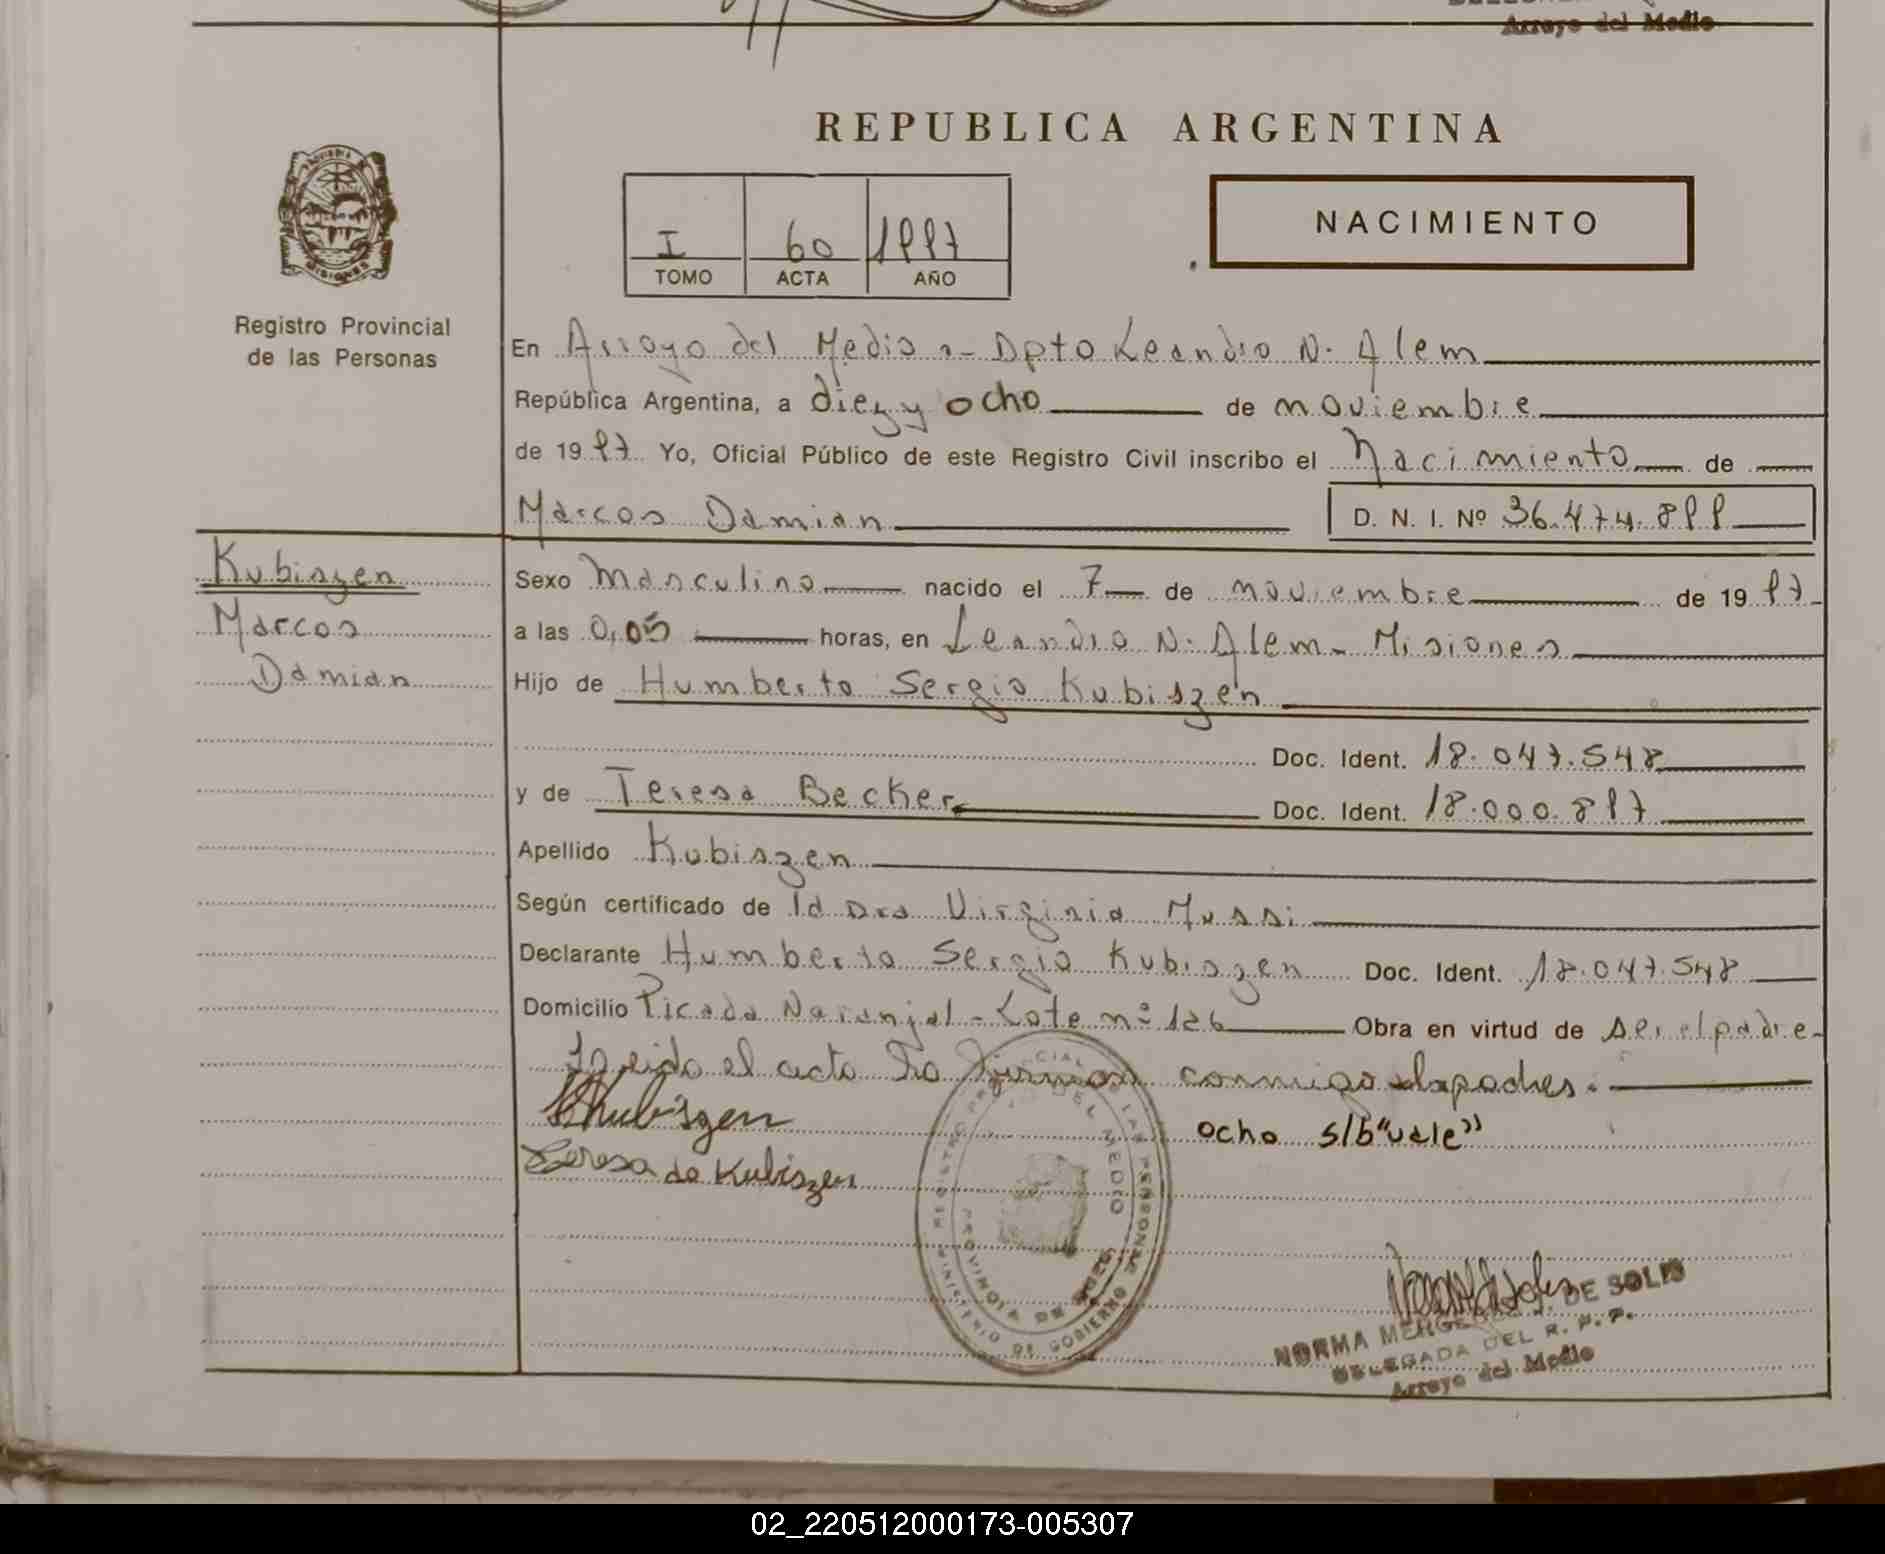 Arroyo del Medio
REPUBLICA ARGENTINA
NACIMIENTO
I 60 1997
TOMO ACTA AÑO
Registro Provincial
de las Personas
En Arroyo del Medio - Dpto Leandro N. Alem
República Argentina, a diez y ocho de noviembre
de 1997 Yo, Oficial Público de este Registro Civil inscribo el Nacimiento de
Marcos Damian D. N. I. Nº 36.474.899
Kubiszen
Marcos
Damian
Sexo Masculino nacido el 7 de noviembre de 1997
a las 0,05 horas, en Leandro N. Alem - Misiones
Hijo de Humberto Sergio Kubiszen
Doc. Ident. 18.047.548
y de Teresa Becker Doc. Ident. 18.000.897
Apellido Kubiszen
Según certificado de la Dra Virginia Mussi
Declarante Humberto Sergio Kubiszen Doc. Ident. 18.047.548
Domicilio Picada Naranjal - Lote nº 126 Obra en virtud de ser el padre
Leido el acta la firman conmigo los padres.
Kubiszen
ocho s/b "vale"
Teresa de Kubiszen
REGISTRO PROVINCIAL DE LAS PERSONAS
MINISTERIO DE GOBIERNO
DEL MEDIO
PROVINCIA DE
NORMA DE SOLIS
DELEGADA DEL R. P. P.
Arroyo del Medio
02_220512000173-005307